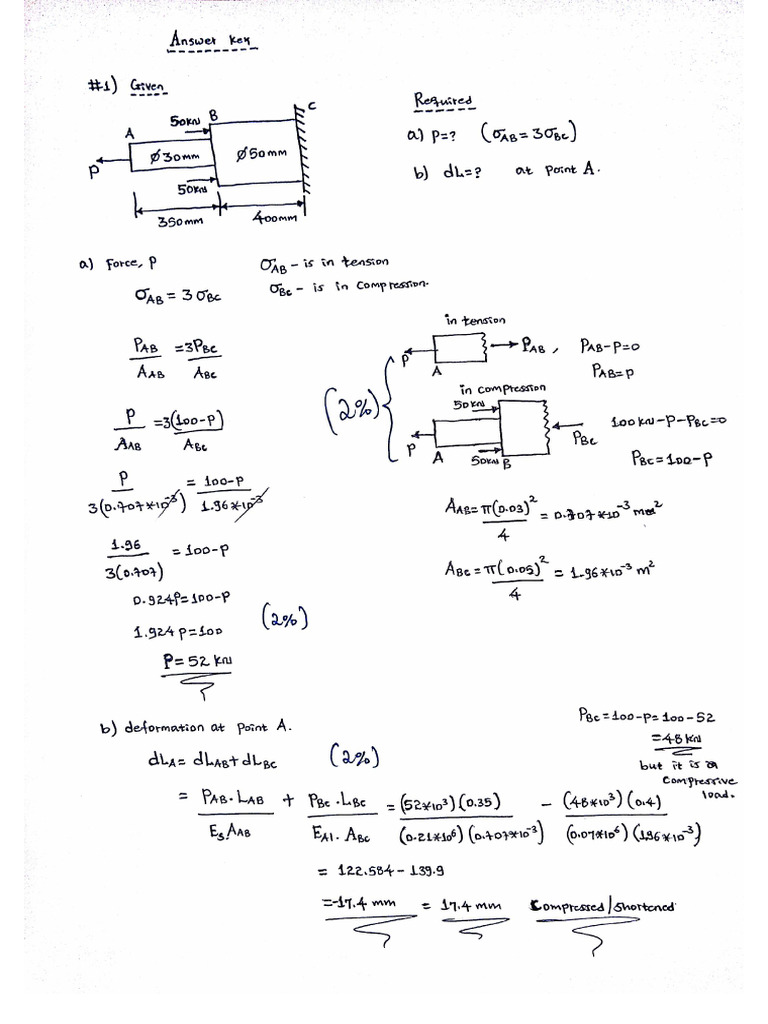 Answer key
#1) Given
Required
a) P=? (σAB = 3σBC)
b) dL=? at Point A.
A
50KN
B
C
P
Ø30mm
Ø50mm
50KN
350mm
400mm
a) Force, P
σAB – is in tension
σBC – is in compression.
σAB = 3σBC
PAB/AAB = 3PBC/ABC
in tension
P
A
PAB, PAB-P=0
PAB=P
(2%)
in compression
50KN
P
A
50KN
B
PBC
100KN-P-PBC=0
PBC=100-P
P/AAB = 3(100-P)/ABC
P/3(0.707*10^-3) = 100-P/1.96*10^-3
AAB = π(0.03)^2/4 = 0.707*10^-3 m^2
ABC = π(0.05)^2/4 = 1.96*10^-3 m^2
1.96/3(0.707) = 100-P
0.924P=100-P
1.924P=100
(2%)
P=52 KN
b) deformation at Point A.
PBC=100-P=100-52
=48KN
but it is a
compressive
load.
dLA = dLAB+dLBC
(2%)
= PAB.LAB/EsAAB + PBC.LBC/EAl.ABC = (52*10^3)(0.35)/(0.21*10^6)(0.707*10^-3) - (48*10^3)(0.4)/(0.07*10^6)(1.96*10^-3)
= 122.584-139.9
=-17.4 mm = 17.4 mm Compressed/Shortened